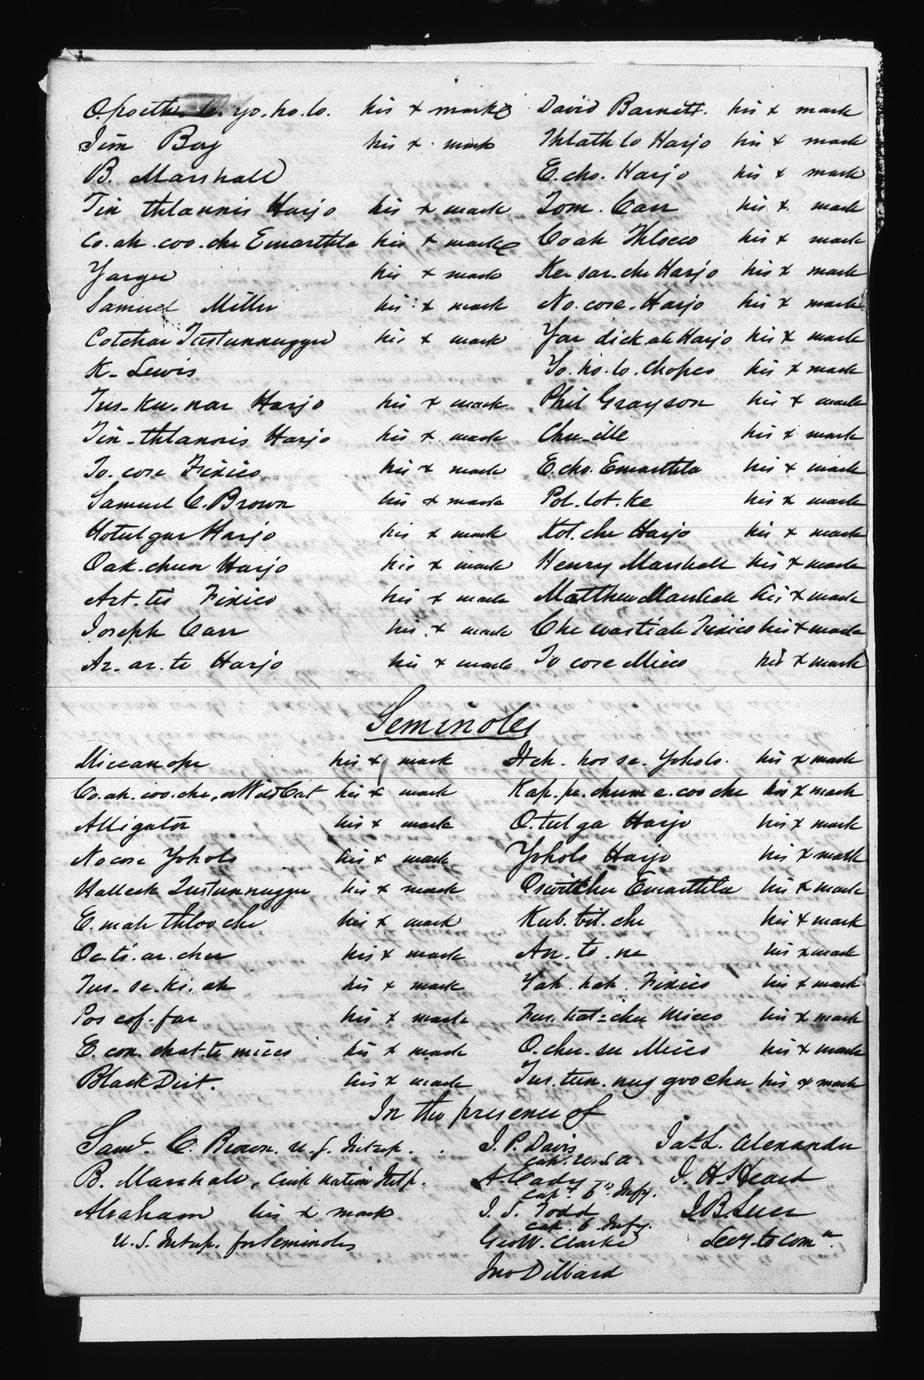 Opoeth yo.ho.lo. his x mark David Barnett. his x mark
Jim Boy his x mark Thlathlo Harjo his x mark
B. Marshall E.cho. Harjo his x mark
Tin thlannis Harjo his x mark Tom. Carr his x mark
Co.ah.coo.che Emarthla his x mark Coah Thlocco his x mark
Yargee his x mark Ke.sar.che Harjo his x mark
Samuel Miller his x mark No.cose.Harjo his x mark
Cotchar Tustunnuggee his x mark Yar dick ah Harjo his x mark
K. Lewis Yo.ho.lo.chopco his x mark
Tus.ku.nar Harjo his x mark Phil Grayson his x mark
Tin-thlannis Harjo his x mark Chu-ille his x mark
To.cose Fixico his x mark E.cho.Emarthla his x mark
Samuel C. Brown his x mark Pol.lot.ke his x mark
Hotulgar Harjo his x mark Kot.che Harjo his x mark
Oak.chun Harjo his x mark Henry Marshall his x mark
Art.tis Fixico his x mark Matthew Marshall his x mark
Joseph Carr his x mark Che wastiah Fixico his x mark
Ar.ar.te Harjo his x mark To cose Micco his x mark
Seminoles
Miccanope his x mark Itch.hos se.Yoholo. his x mark
Co.ah.coo.che, or Wild Cat his x mark Kap.pe.chum e.coo che his x mark
Alligator his x mark O.tul ga Harjo his x mark
Nocose Yoholo his x mark Yoholo Harjo his x mark
Halleck Tustunnuggee his x mark Oswitchee Emarthla his x mark
E.mah thloo che his x mark Kub.bit.che his x mark
Oc.ti.ar.chee his x mark An.to.ne his x mark
Tus.se.ki.ah his x mark Yah.hah.Fixico his x mark
Pos cof.far his x mark Fus.hat-chee Micco his x mark
E.con.chat.te micco his x mark O.chee.see Micco his x mark
Black Dirt. his x mark Tus.tun.nug goo chee his x mark
In the presence of
Saml. C. Brown. U.S. Intrp. J. P. Davis Jas. L. Alexander
Capt. U.S.A
B. Marshall, Creek nation Intp. A Cady J. H. Heard
Capt. 6th Infy.
Abraham his x mark J. S. Todd J B Luce
Capt. 6. Infy.
U.S. Intrp. for Seminoles Geo W. Clarke Secy. to Comr.
Jno Dillard